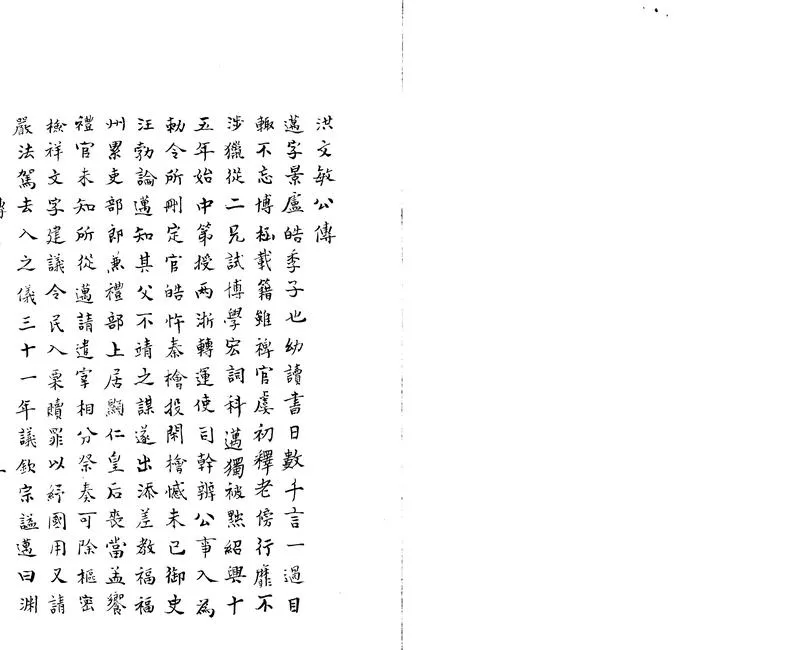 洪文敏公傳
邁字景盧皓季子也幼讀書日數千言一過目
輒不忘博極載籍雖稗官虞初釋老傍行靡不
涉獵從二兄試博學宏詞科邁獨被黜紹興十
五年始中第授兩浙轉運使司幹辨公事入為
勅令所刪定官皓忤秦檜投閑檜憾未已御史
汪勃論邁知其父不靖之謀遂出添差教福福
州累吏部郎兼禮部上居顯仁皇后喪當孟饗
禮官未知所從邁請遣宰相分祭奏可除樞密
檢祥文字建議令民入粟贖罪以紓國用又請
嚴法駕去入之儀三十一年議欽宗謚邁曰淵